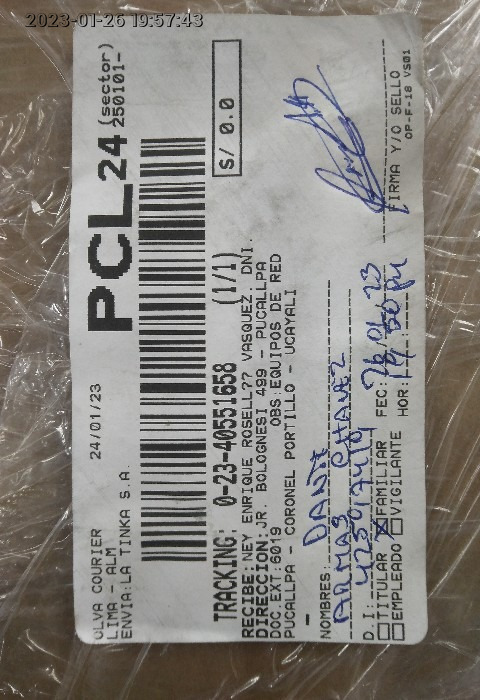 2023-01-26 19:57:43
OLVA COURIER
LIMA - ALM
24/01/23
PCL24 (sector)
250101-
ENVIA:LA TINKA S.A.
TRACKING: 0-23-40551658 (1/1)
S/ 0.0
RECIBE:NEY ENRIQUE ROSELL77 VASQUEZ. DNI.
DIRECCION:JR. BOLOGNESI 499 - PUCALLPA
DOC.EXT:6019 OBS:EQUIPOS DE RED
PUCALLPA - CORONEL PORTILLO - UCAYALI
NOMBRES: DANTE
ARMAS CHAVEZ
D.I:
TITULAR FAMILIAR FEC: 26/01/23
EMPLEADO VIGILANTE HOR: 19:50 PM
FIRMA Y/O SELLO
OP-F-18 VS01